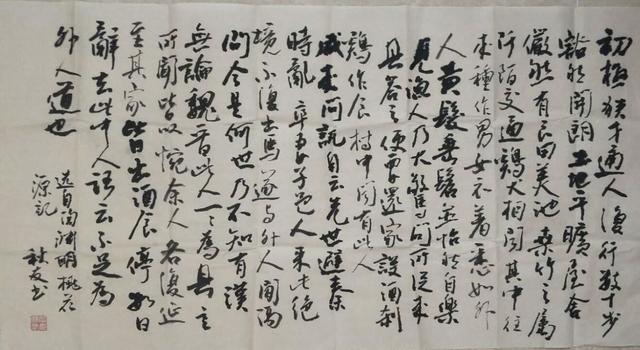 初極狹才通人復行數十步
豁然開朗土地平曠屋舍
儼然有良田美池桑竹之屬
阡陌交通鷄犬相聞其中往
來種作男女衣著悉如外
人黄髮垂髫並怡然自樂
見漁人乃大驚問所從來
具答之便要還家設酒殺
鷄作食村中聞有此人
咸來問訊自云先世避秦
時亂率妻子邑人來此絕
境不復出焉遂與外人間隔
問今是何世乃不知有漢
無論魏晉此人一一為具言
所聞皆嘆惋余人各復延
至其家皆出酒食停數日
辭去此中人語云不足為
外人道也
選自陶淵明桃花
源記 書